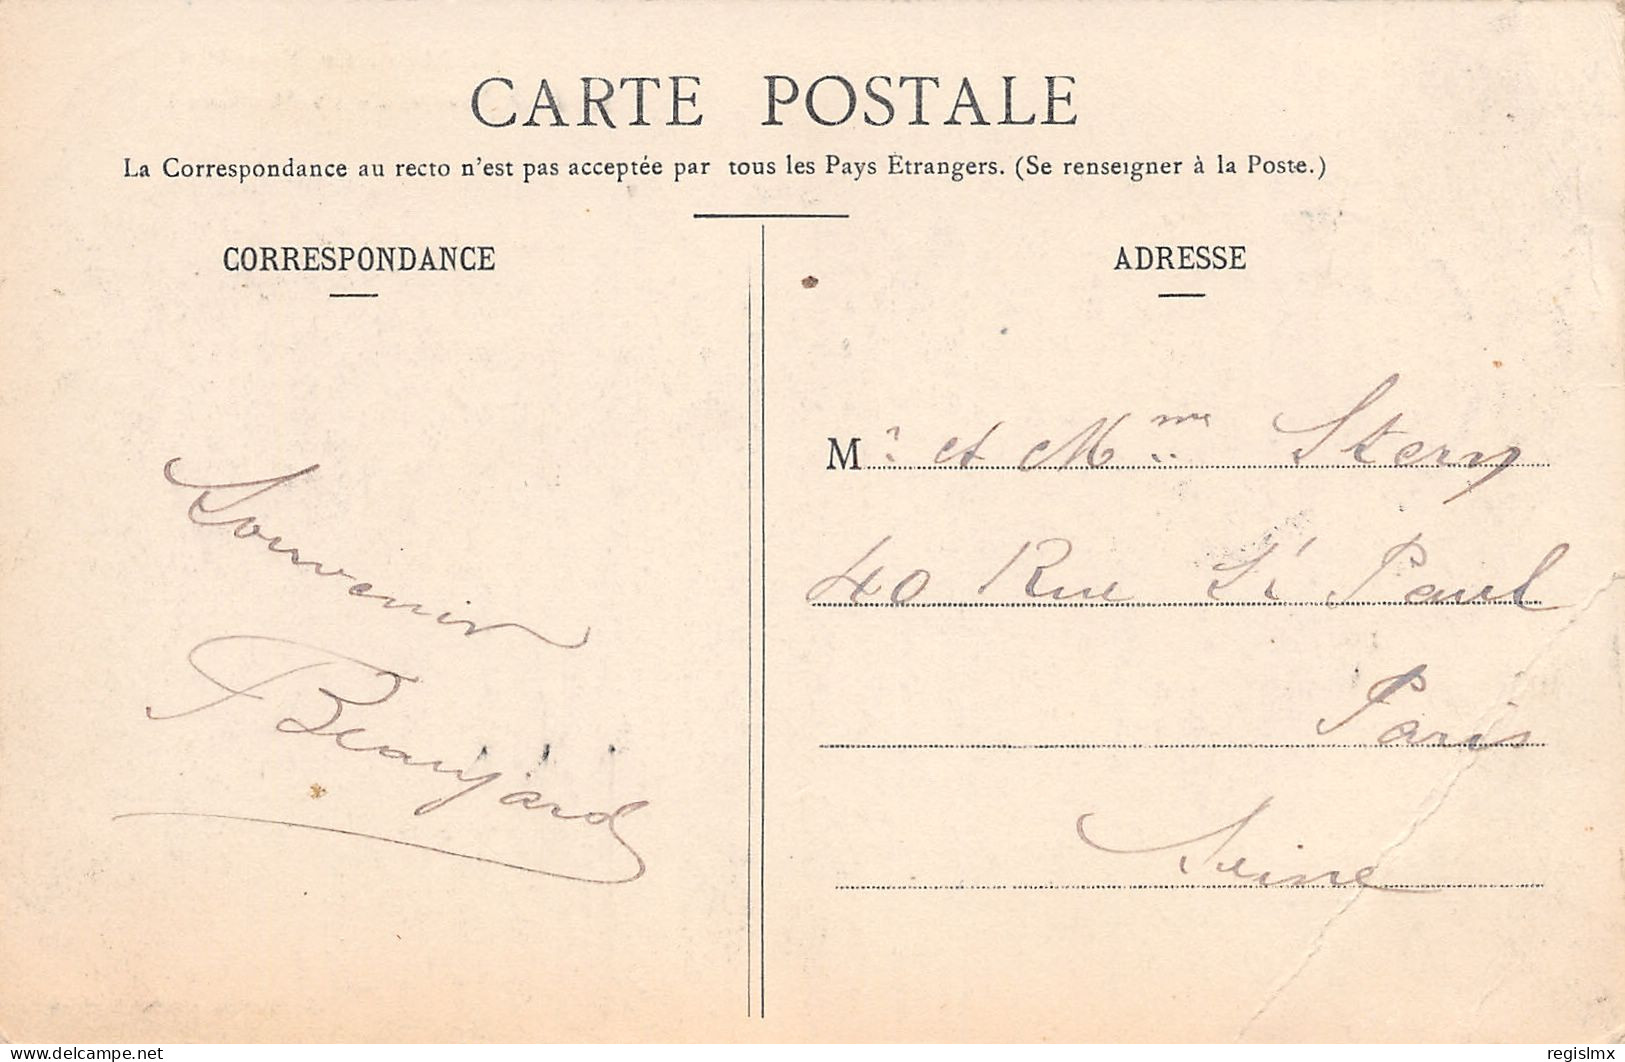 CARTE POSTALE
La Correspondance au recto n'est pas acceptée par tous les Pays Étrangers. (Se renseigner à la Poste.)
CORRESPONDANCE
ADRESSE
Souvenir
Beaujard
Mr et Mme Stery
40 Rue St Paul
Paris
Seine
delcampe.net
regislmx